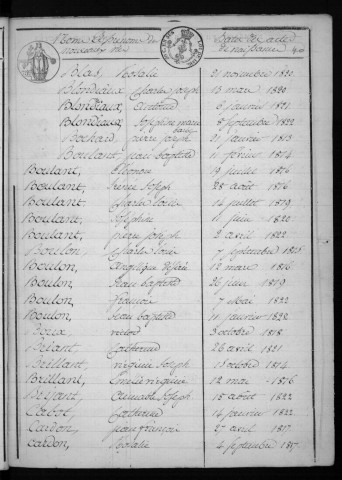 Noms et prénoms des nouveaux nés
Dates des actes de naissance
Blas, Rosalie 21 novembre 1820
Blondieaux, Charles joseph 13 mars 1820
Blondieaux, 6 janvier 1821
Blondieaux, Joséphine 8 septembre 1822
Bochard, pierre joseph 21 janvier 1813
Boulant, jean baptiste 11 février 1814
Boulant, Eléonore 19 juillet 1816
Boulant, pierre Joseph 28 août 1816
Boulant, Charles Louis 14 juillet 1819
Boulant, Joséphine 11 juin 1820
Boulant, pierre joseph 2 avril 1822
Boulon, Charles Louis 7 septembre
Boulon, Angélique 12 mars 1816
Boulon, Jean baptiste 26 juin 1819
Boulon, françois 7 Mai 1822
Boulon, Jean baptiste 11 janvier 1822
Boux, victor 3 octobre 1818
Briant, Catherine 26 avril 1821
Brillant, virginie Joseph 1 octobre 1814
Brillant, Emélie virginie 12 mai 1816
Joseph 15 août 1822
Cabot, Catherine 14 février 1822
Cardon, jean françois 27 avril 1817
Cardon, Rosalie 4 septembre 1817